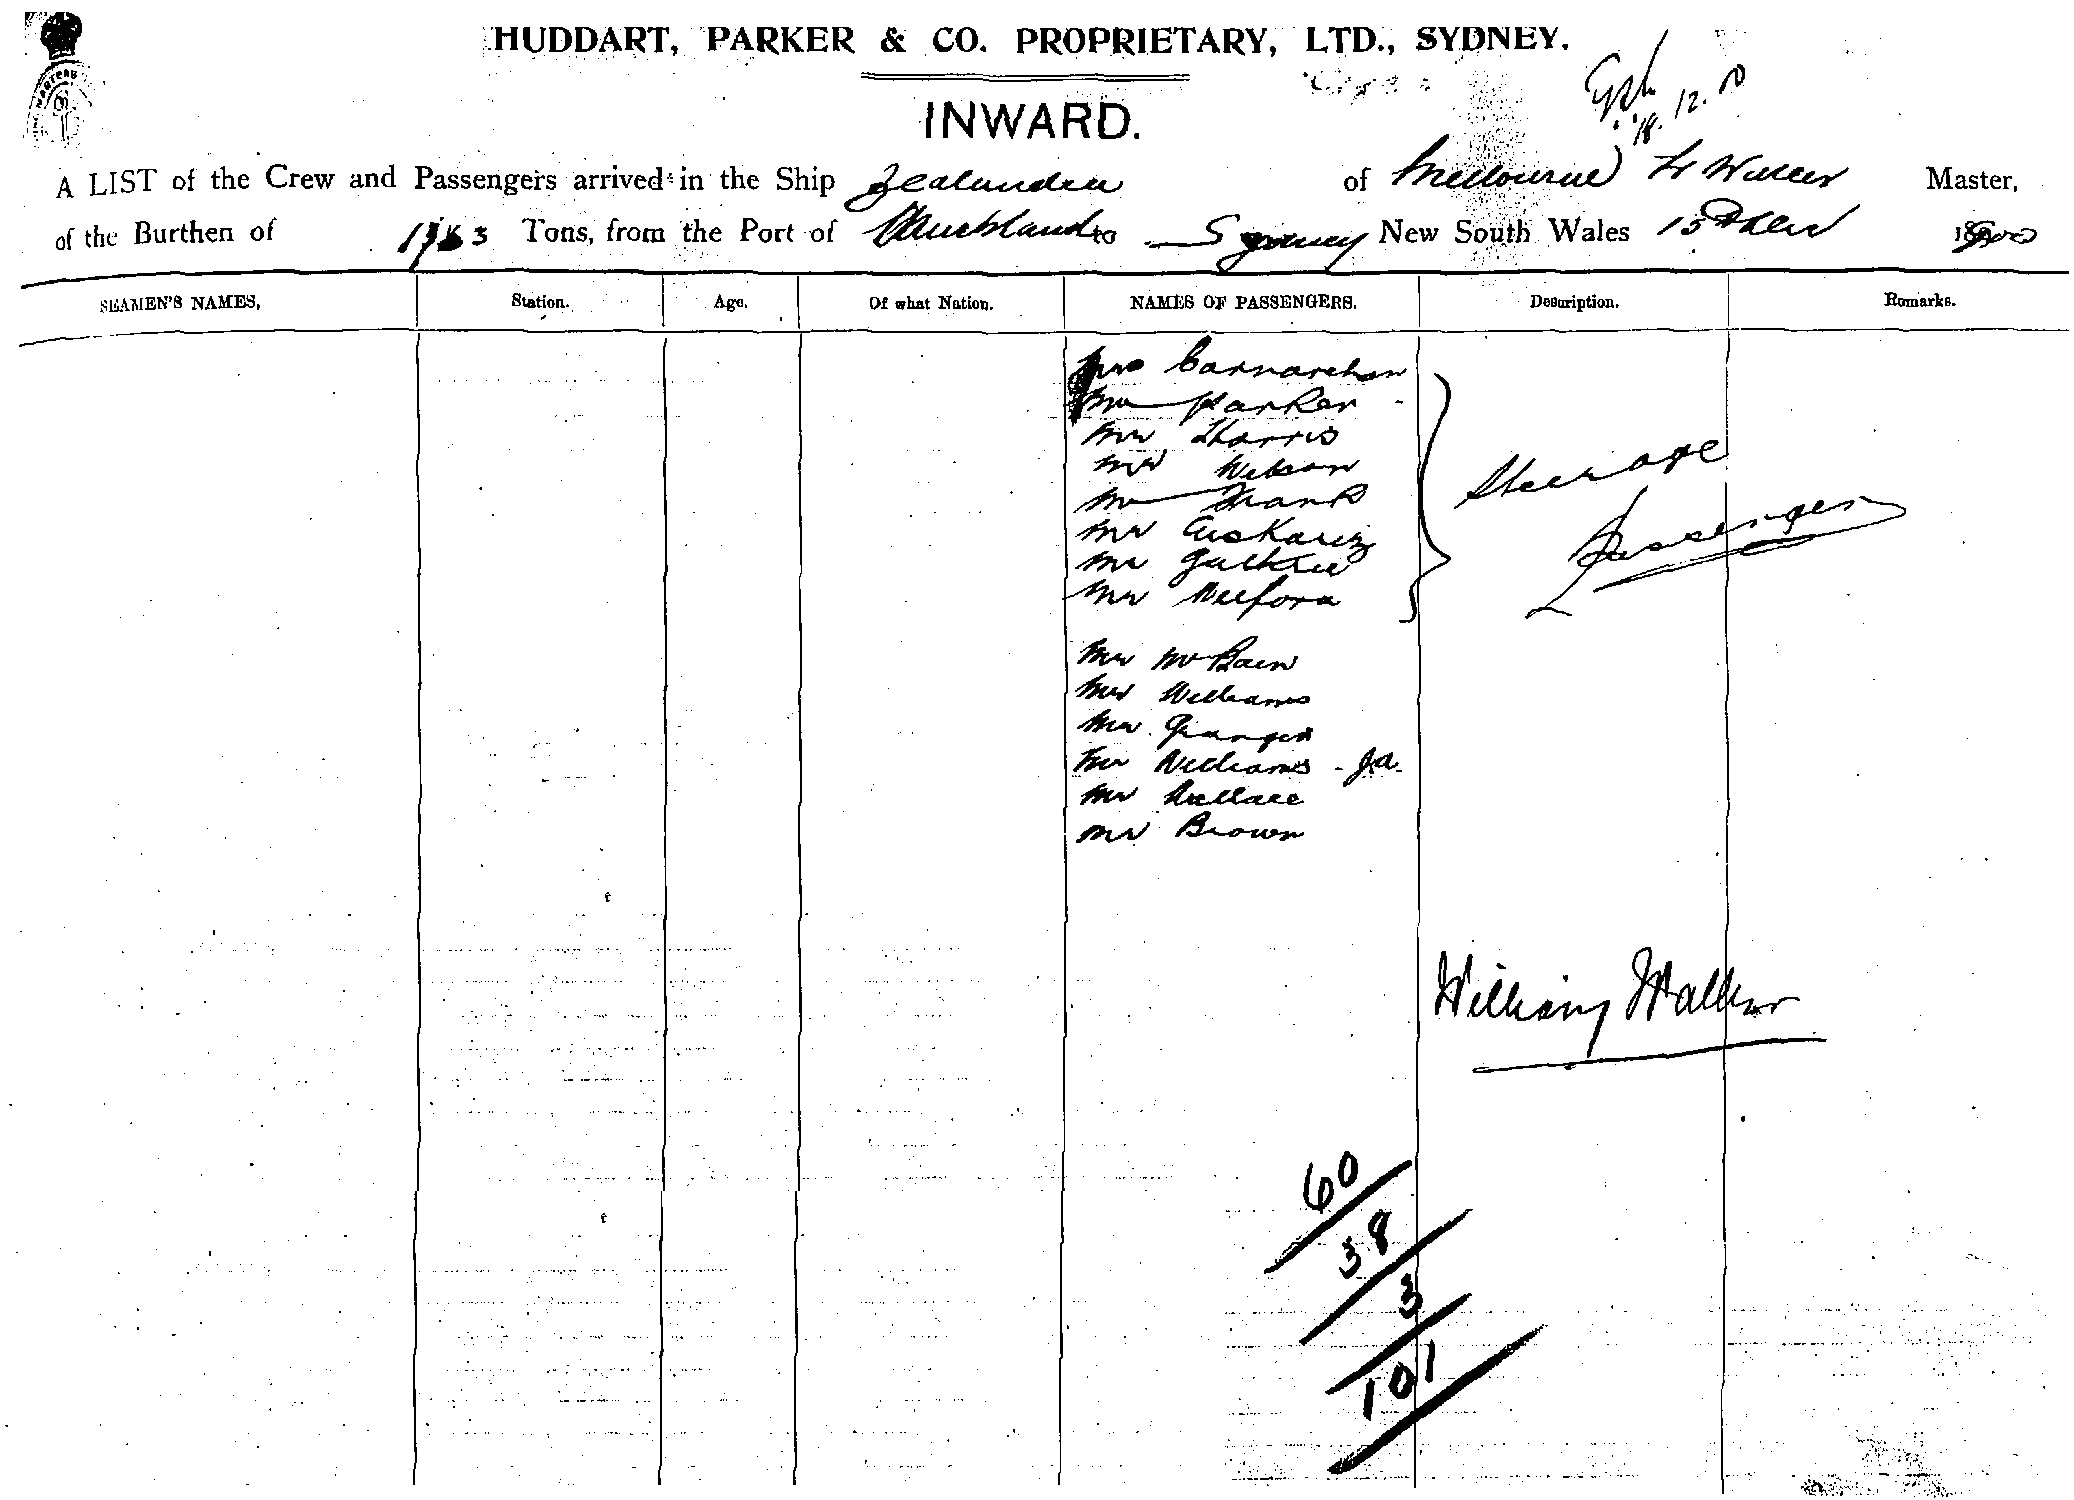 HUDDART, PARKER & CO. PROPRIETARY, LTD., SYDNEY.
INWARD.
18.12.00
A LIST of the Crew and Passengers arrived in the Ship Zealandia of Melbourne W Walker Master,
of the Burthen of Tons, from the Port of Auckland to Sydney New South Wales 15th Dec 1900
SEAMEN'S NAMES, Station. Age. Of what Nation. NAMES OF PASSENGERS. Description. Remarks.
Mrs
Mr Parker
Mr Harris
Mr Wilson
Mr Frank
Mr
Mr Guthrie
Mr
Steerage
Passengers
Mr McBain
Mrs Williams
Mr
Mr Williams
Mr Wallace
Mr Brown
William Walker
60
38
3
101